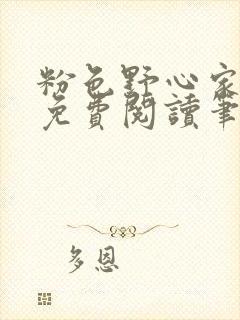 粉色野心家
免費閱讀筆
多恩